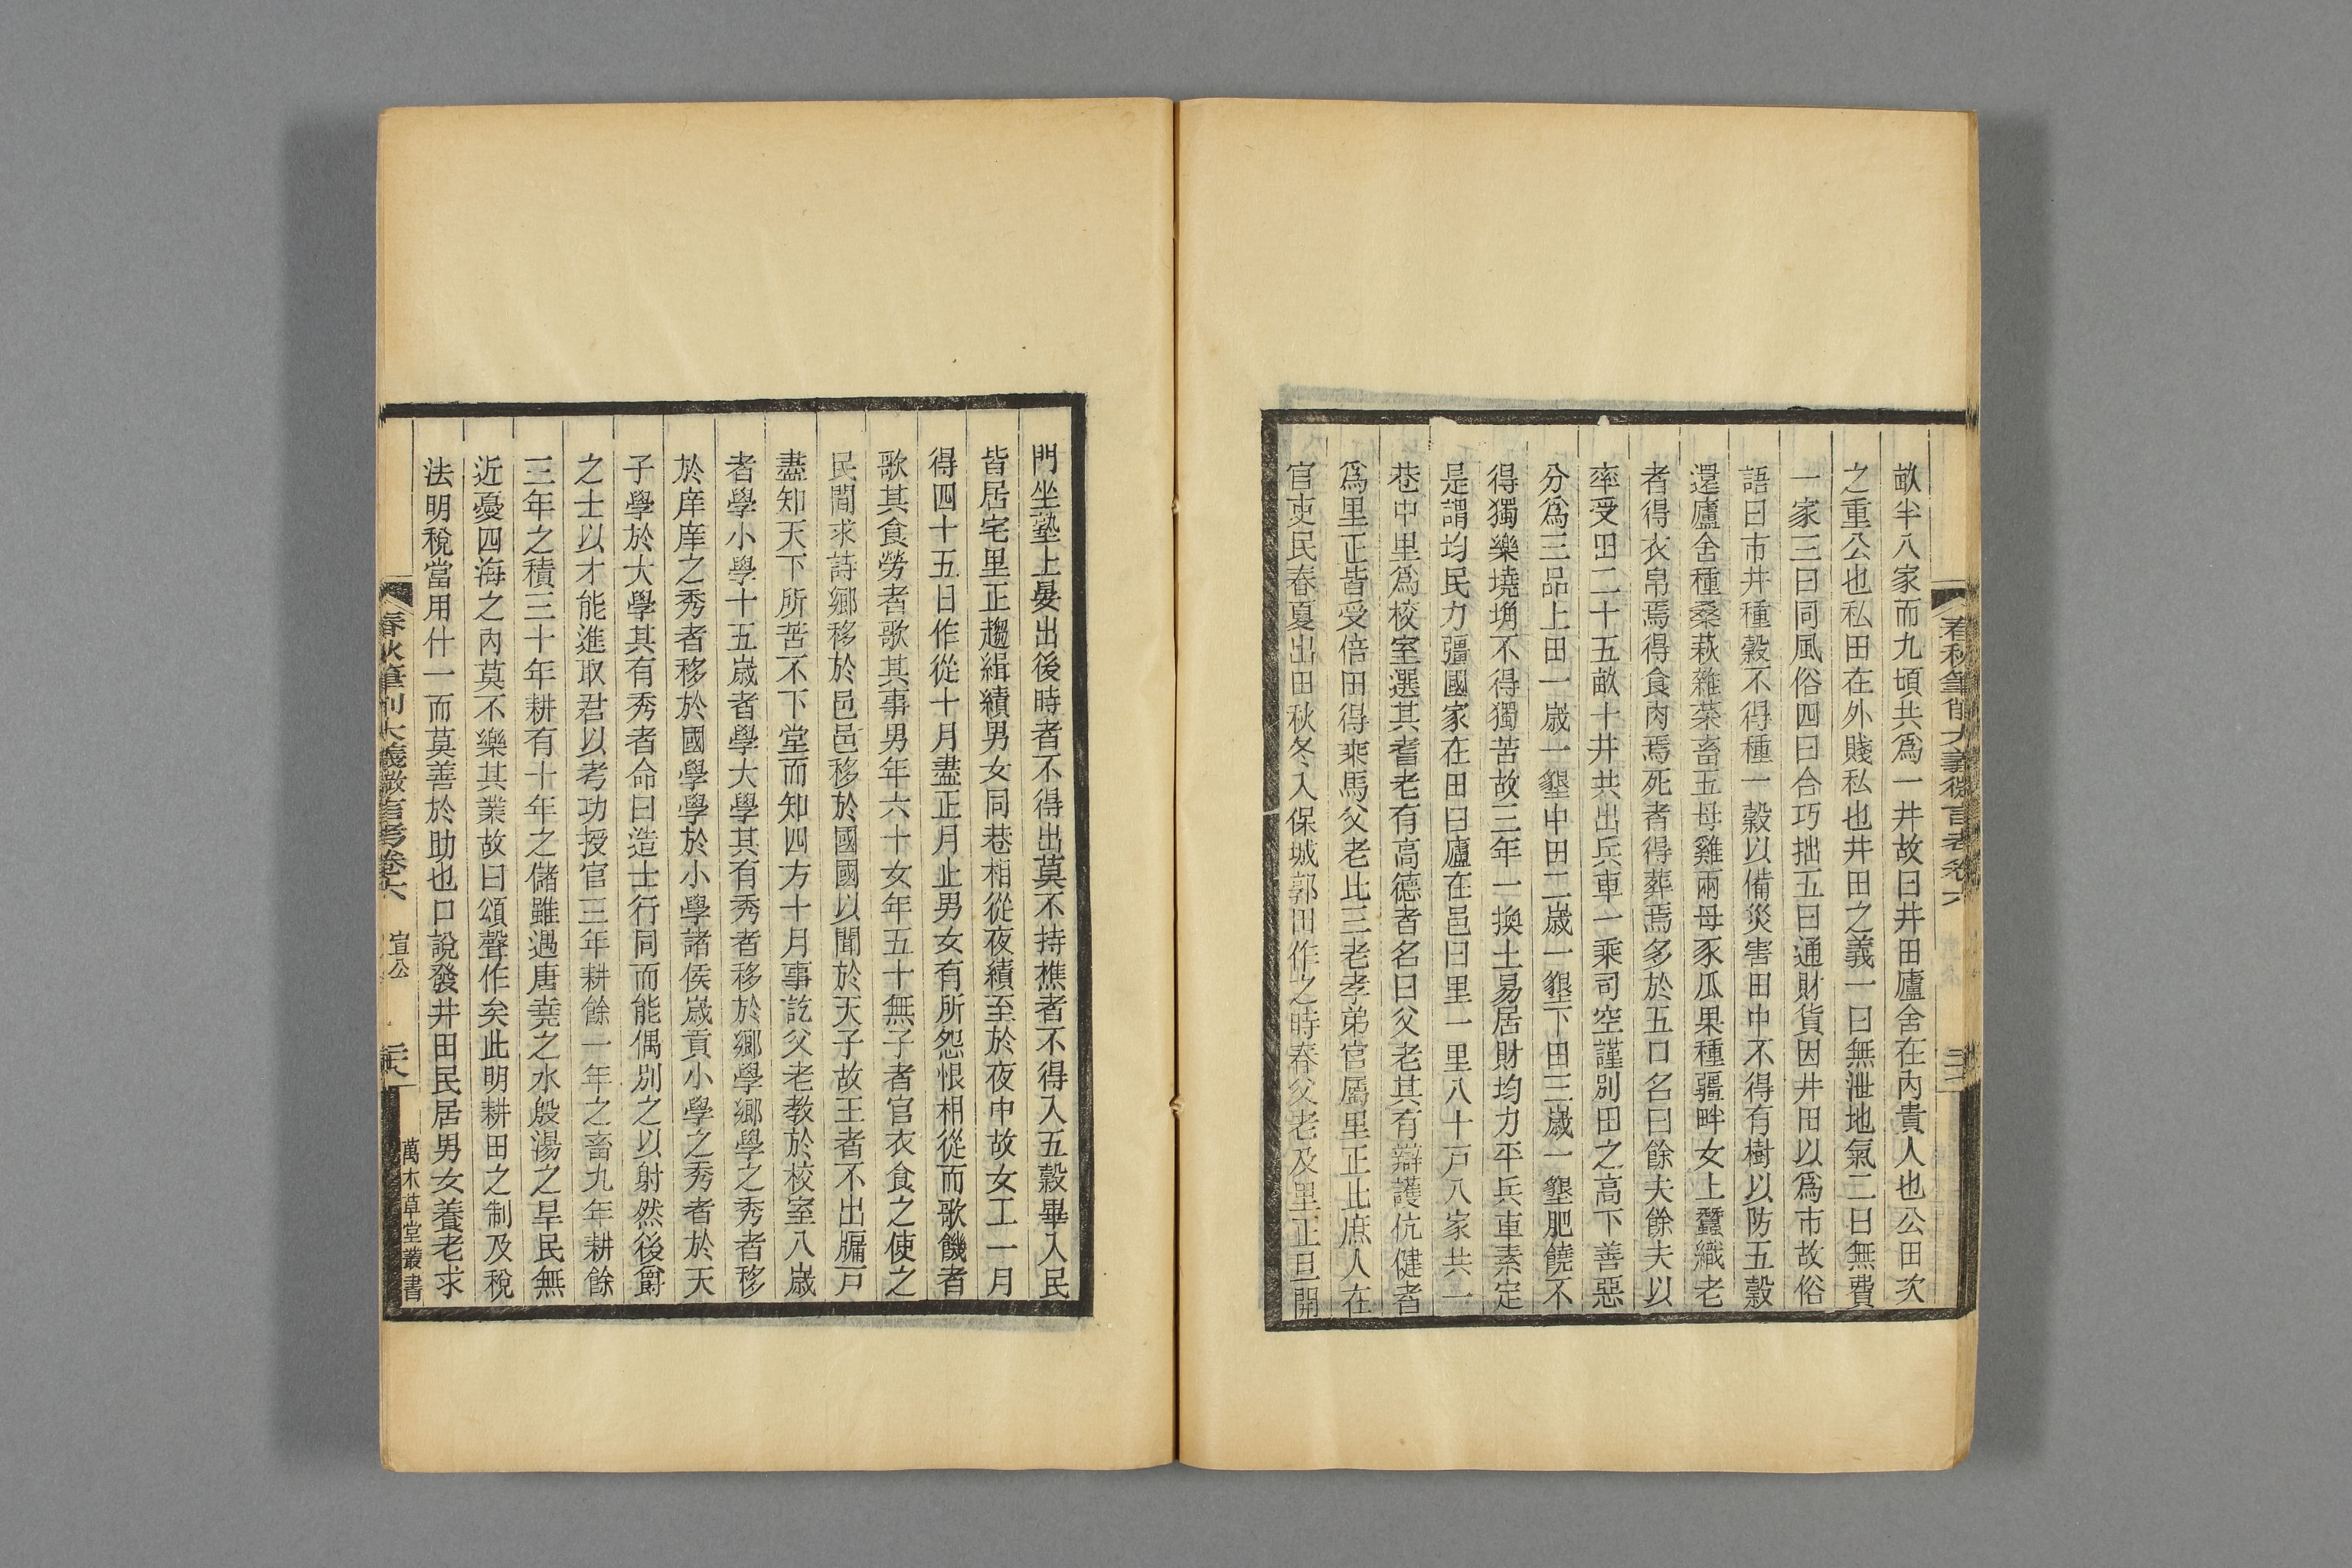 畝半八家而九頃共爲一井故曰井田廬舍在內貴人也公田次
之重公也私田在外賤私也井田之義一曰無泄地氣二曰無費
一家三曰同風俗四曰合巧拙五曰通財貨因井田以爲市故俗
語曰市井種穀不得種一穀以備災害田中不得有樹以防五穀
還廬舍種桑萩雜菜畜五母雞兩母豕瓜果種疆畔女上蠶織老
者得衣帛焉得食肉焉死者得葬焉多於五口名曰餘夫餘夫以
率受田二十五畝十井共出兵車一乘司空謹別田之高下善惡
分爲三品上田一歲一墾中田二歲一墾下田三歲一墾肥饒不
得獨樂墝埆不得獨苦故三年一換土易居財均力平兵車素定
是謂均民力彊國家在田曰廬在邑曰里一里八十戸八家共一
巷中里爲校室選其耆老有高德者名曰父老其有辯護伉健者
爲里正皆受倍田得乘馬父老比三老孝弟官屬里正比庶人在
官吏民春夏出田秋冬入保城郭田作之時春父老及里正旦開
春秋筆削大義微言考卷六
門坐塾上晏出後時者不得出莫不持樵者不得入五穀畢入民
皆居宅里正趨緝績男女同巷相從夜績至於夜中故女工一月
得四十五日作從十月盡正月止男女有所怨恨相從而歌饑者
歌其食勞者歌其事男年六十女年五十無子者官衣食之使之
民間求詩鄉移於邑邑移於國國以聞於天子故王者不出牖戸
盡知天下所苦不下堂而知四方十月事訖父老教於校室八歲
者學小學十五歲者學大學其有秀者移於鄉學鄉學之秀者移
於庠庠之秀者移於國學學於小學諸侯歲貢小學之秀者於天
子學於大學其有秀者命曰造士行同而能偶別之以射然後爵
之士以才能進取君以考功授官三年耕餘一年之畜九年耕餘
三年之積三十年耕有十年之儲雖遇唐堯之水殷湯之旱民無
近憂四海之內莫不樂其業故曰頌聲作矣此明耕田之制及稅
法明稅當用什一而莫善於助也口說發井田民居男女養老求
春秋筆削大義微言考卷六
宣公
萬木草堂叢書